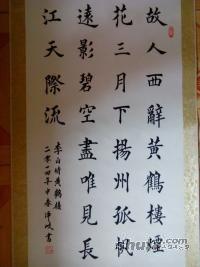 故人西辭黃鶴樓煙
花三月下揚州孤帆
遠影碧空盡唯見長
江天際流
李白詩黃鶴樓
二零一四年中春